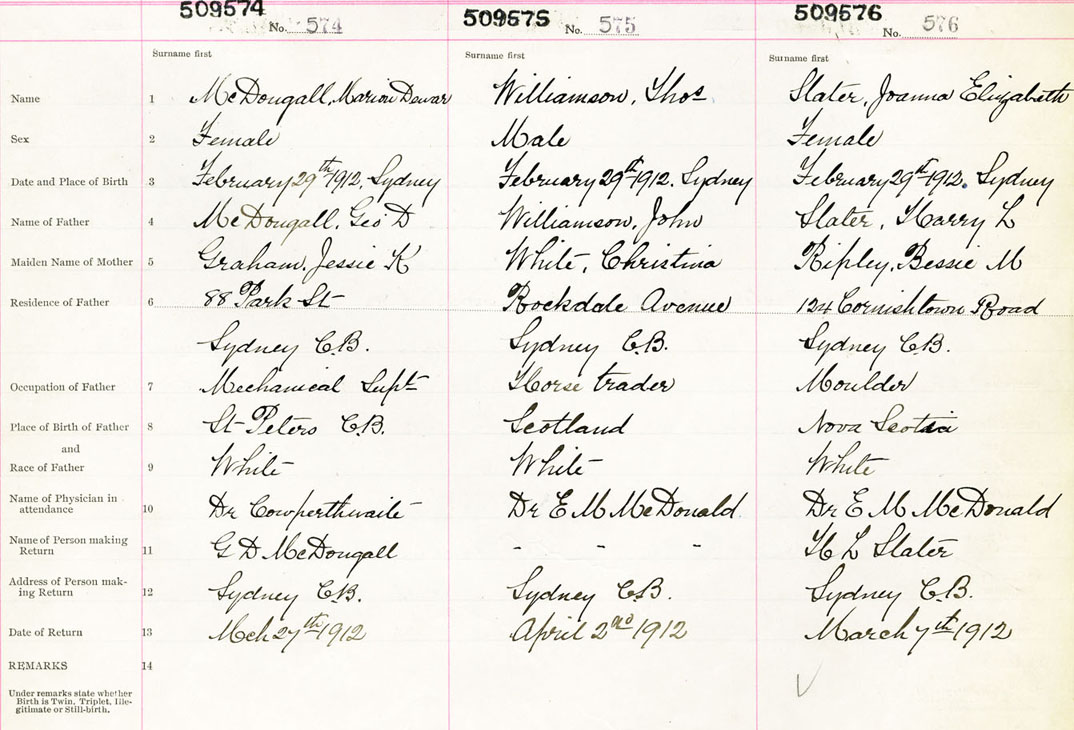 509574 509575 509576
No. 574 No. 575 No. 576
Surname first Surname first Surname first
Name 1 McDougall, Marion Dewar Williamson, Thos Slater, Joanna Elizabeth
Sex 2 Female Male Female
Date and Place of Birth 3 February 29th 1912, Sydney February 29th 1912. Sydney February 29th 1912. Sydney
Name of Father 4 McDougall, Geo D Williamson, John Slater, Harry L
Maiden Name of Mother 5 Graham, Jessie K White, Christina Ripley, Bessie M
Residence of Father 6 88 Park St Rockdale Avenue 124 Cornishtown Road
Sydney C.B. Sydney C.B. Sydney C.B.
Occupation of Father 7 Mechanical Supt Horse trader Moulder
Place of Birth of Father 8 St Peters C.B. Scotland Nova Scotia
and
Race of Father 9 White White White
Name of Physician in
attendance 10 Dr Cowperthwaite Dr E M McDonald Dr E M McDonald
Name of Person making
Return 11 G D McDougall - - - H L Slater
Address of Person mak-
ing Return 12 Sydney C.B. Sydney C.B. Sydney C.B.
Date of Return 13 Mch 27th 1912 April 2nd 1912 March 7th 1912
REMARKS 14
Under remarks state whether
Birth is Twin, Triplet, Ille-
gitimate or Still-birth.